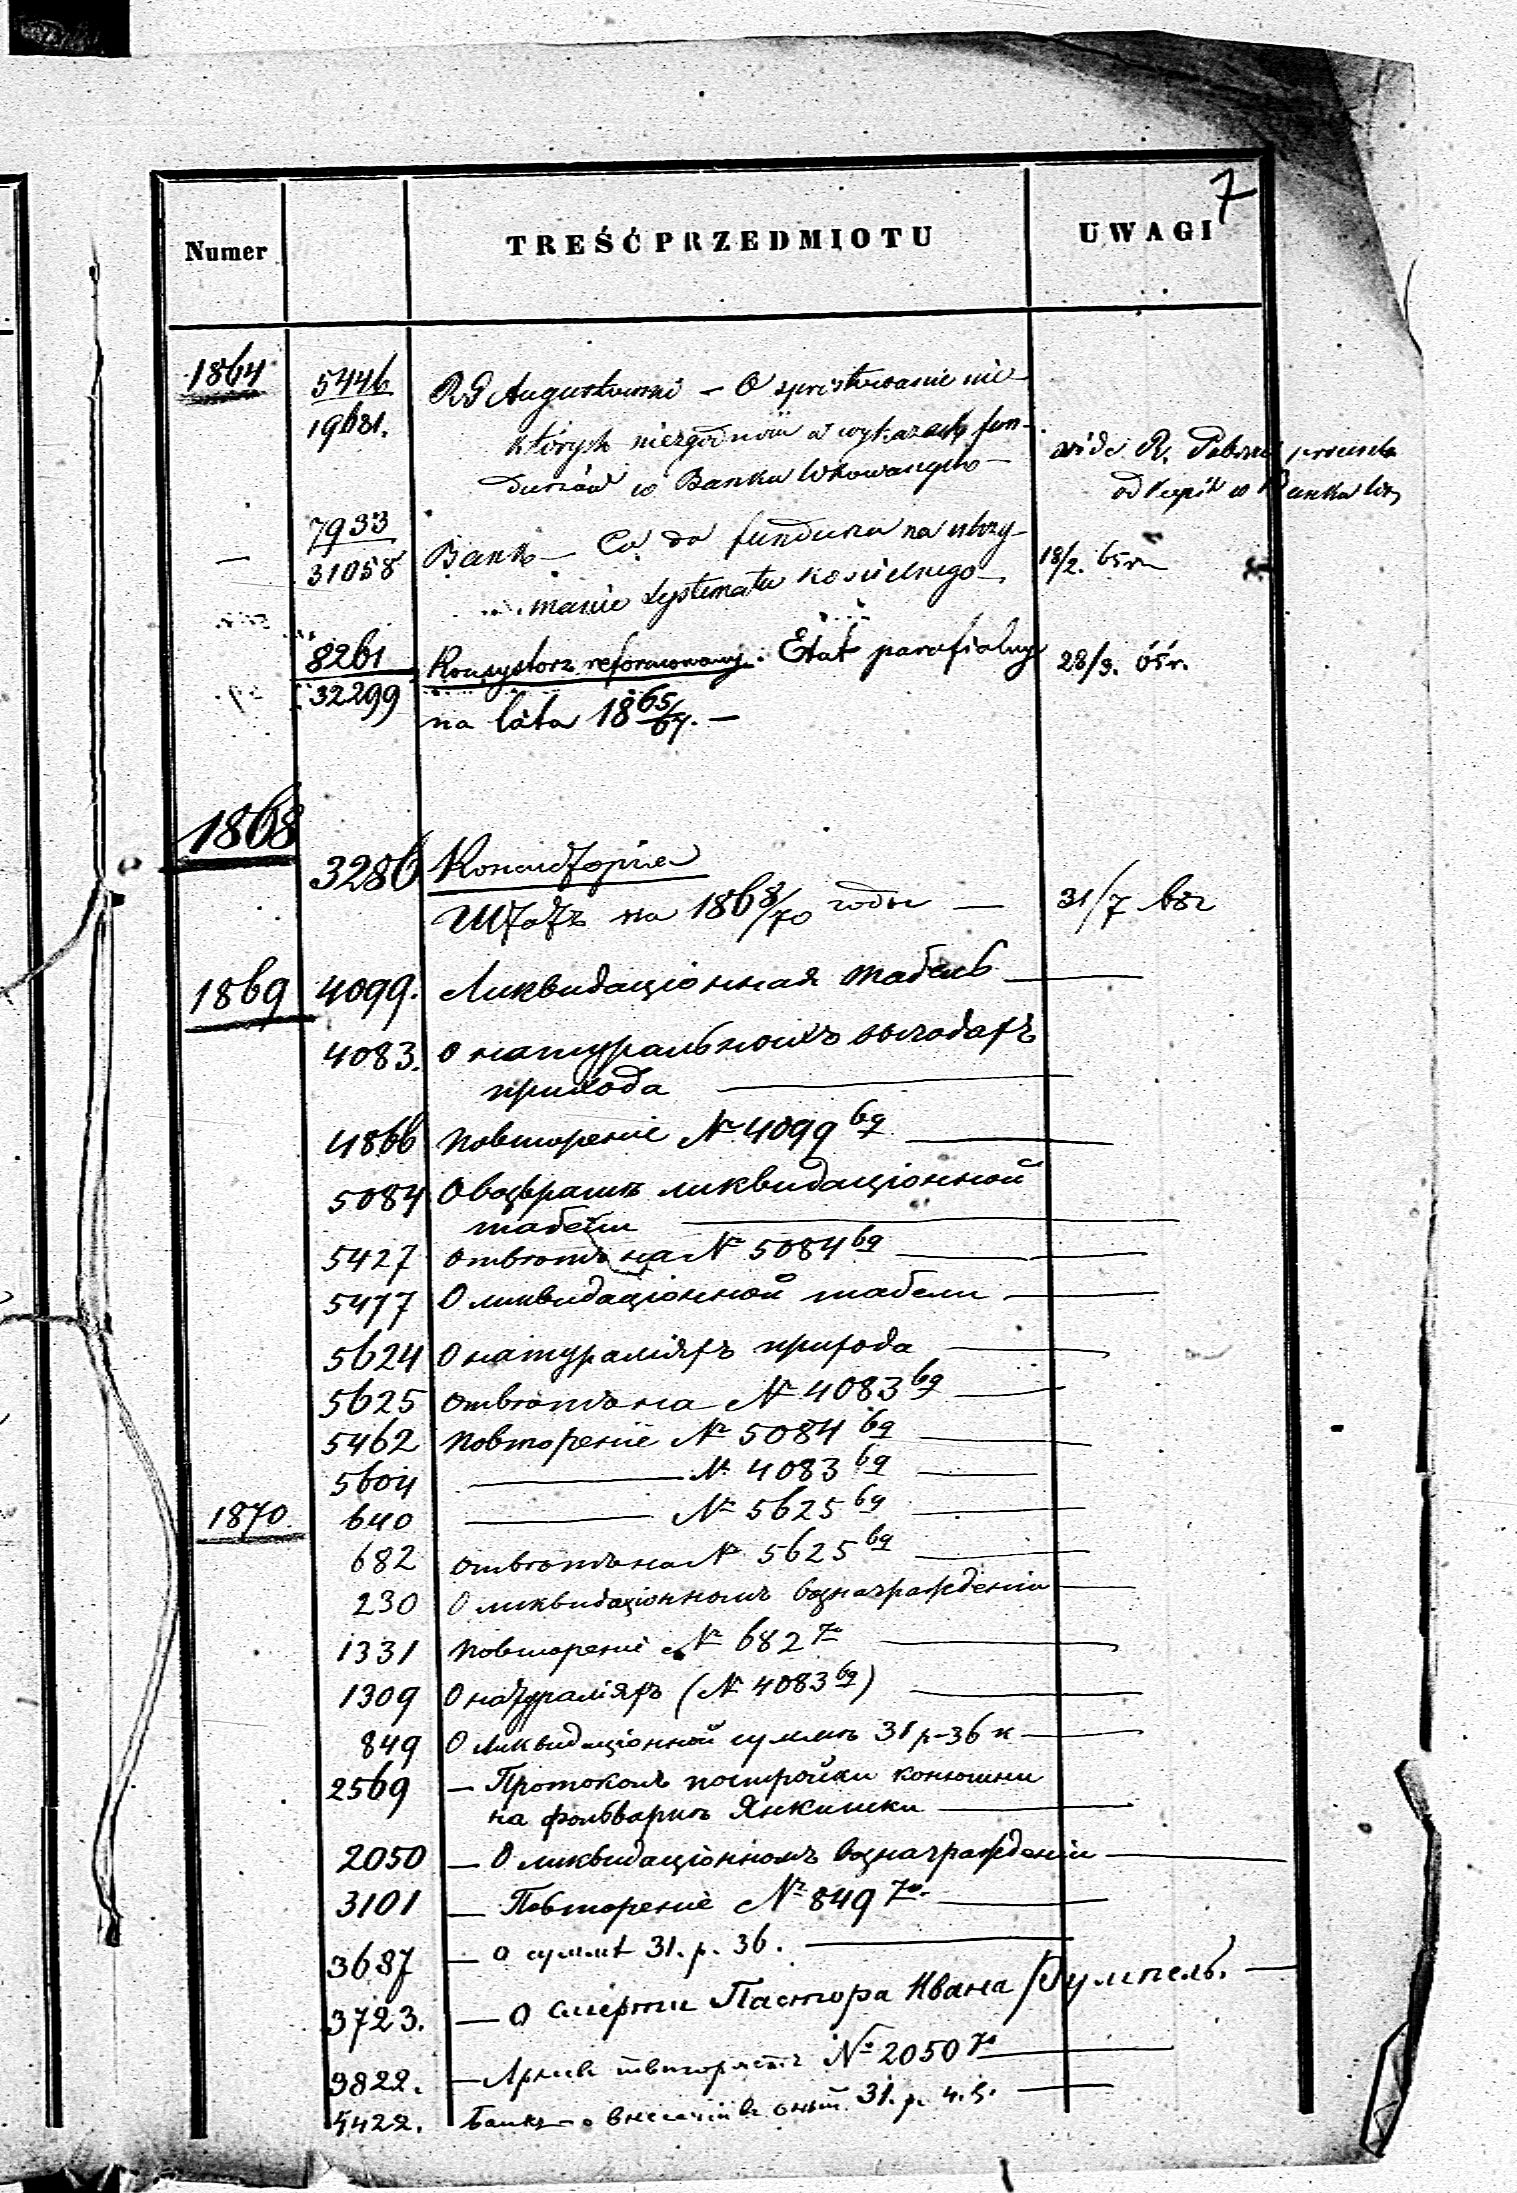 7
Numer TREŚĆ PRZEDMIOTU UWAGI
1864 5446 RG Augustowski – O sprostowanie nie-
19681. których niezgodności w wykazach fun-
duszów w Banku lokowanych – vide R.
od w Banku
– 7933 Bank – Co do funduszu na utrzy-
31058 manie systematu kościelnego – 18/2. 65 r
8261 Konsystorz reformowany. Etat parafialny 28/3. 65 r.
32299 na lata 1865/67. –
1868
3286 Консисторія
Штатъ на 1868/70 годы — 31/7 68 г
1869 4099. Ликвидаціонная табель —
4083. О натуральныхъ выгодахъ
прихода —
4866 Повтореніе № 4099 69 —
5084 О возвратѣ ликвидаціонной
табели —
5427 Отвѣтъ на № 5084 69 —
5477 О ликвидаціонной табели —
5624 О натураліяхъ прихода —
5625 Отвѣтъ на № 4083 69 —
5462 Повтореніе № 5084 69 —
5604 — № 4083 69 —
1870 640 — № 5625 69 —
682 Отвѣтъ на № 5625 69 —
230 О ликвидаціонномъ вознагражденіи —
1331 Повтореніе № 682 70 —
1309 О натураліяхъ (№ 4083 69) —
849 О ликвидаціонной суммѣ 31 р-36 к —
2569 – Протоколъ постройки конюшни
на фольваркѣ Янкишки —
2050 – О ликвидаціонномъ вознагражденіи —
3101 – Повтореніе № 849 70. —
3687 – О суммѣ 31. р. 36. —
3723. – О смерти Пастора Ивана Гумпель. —
3822. – № 2050 70 —
5422. Банкъ – о 31. р. —